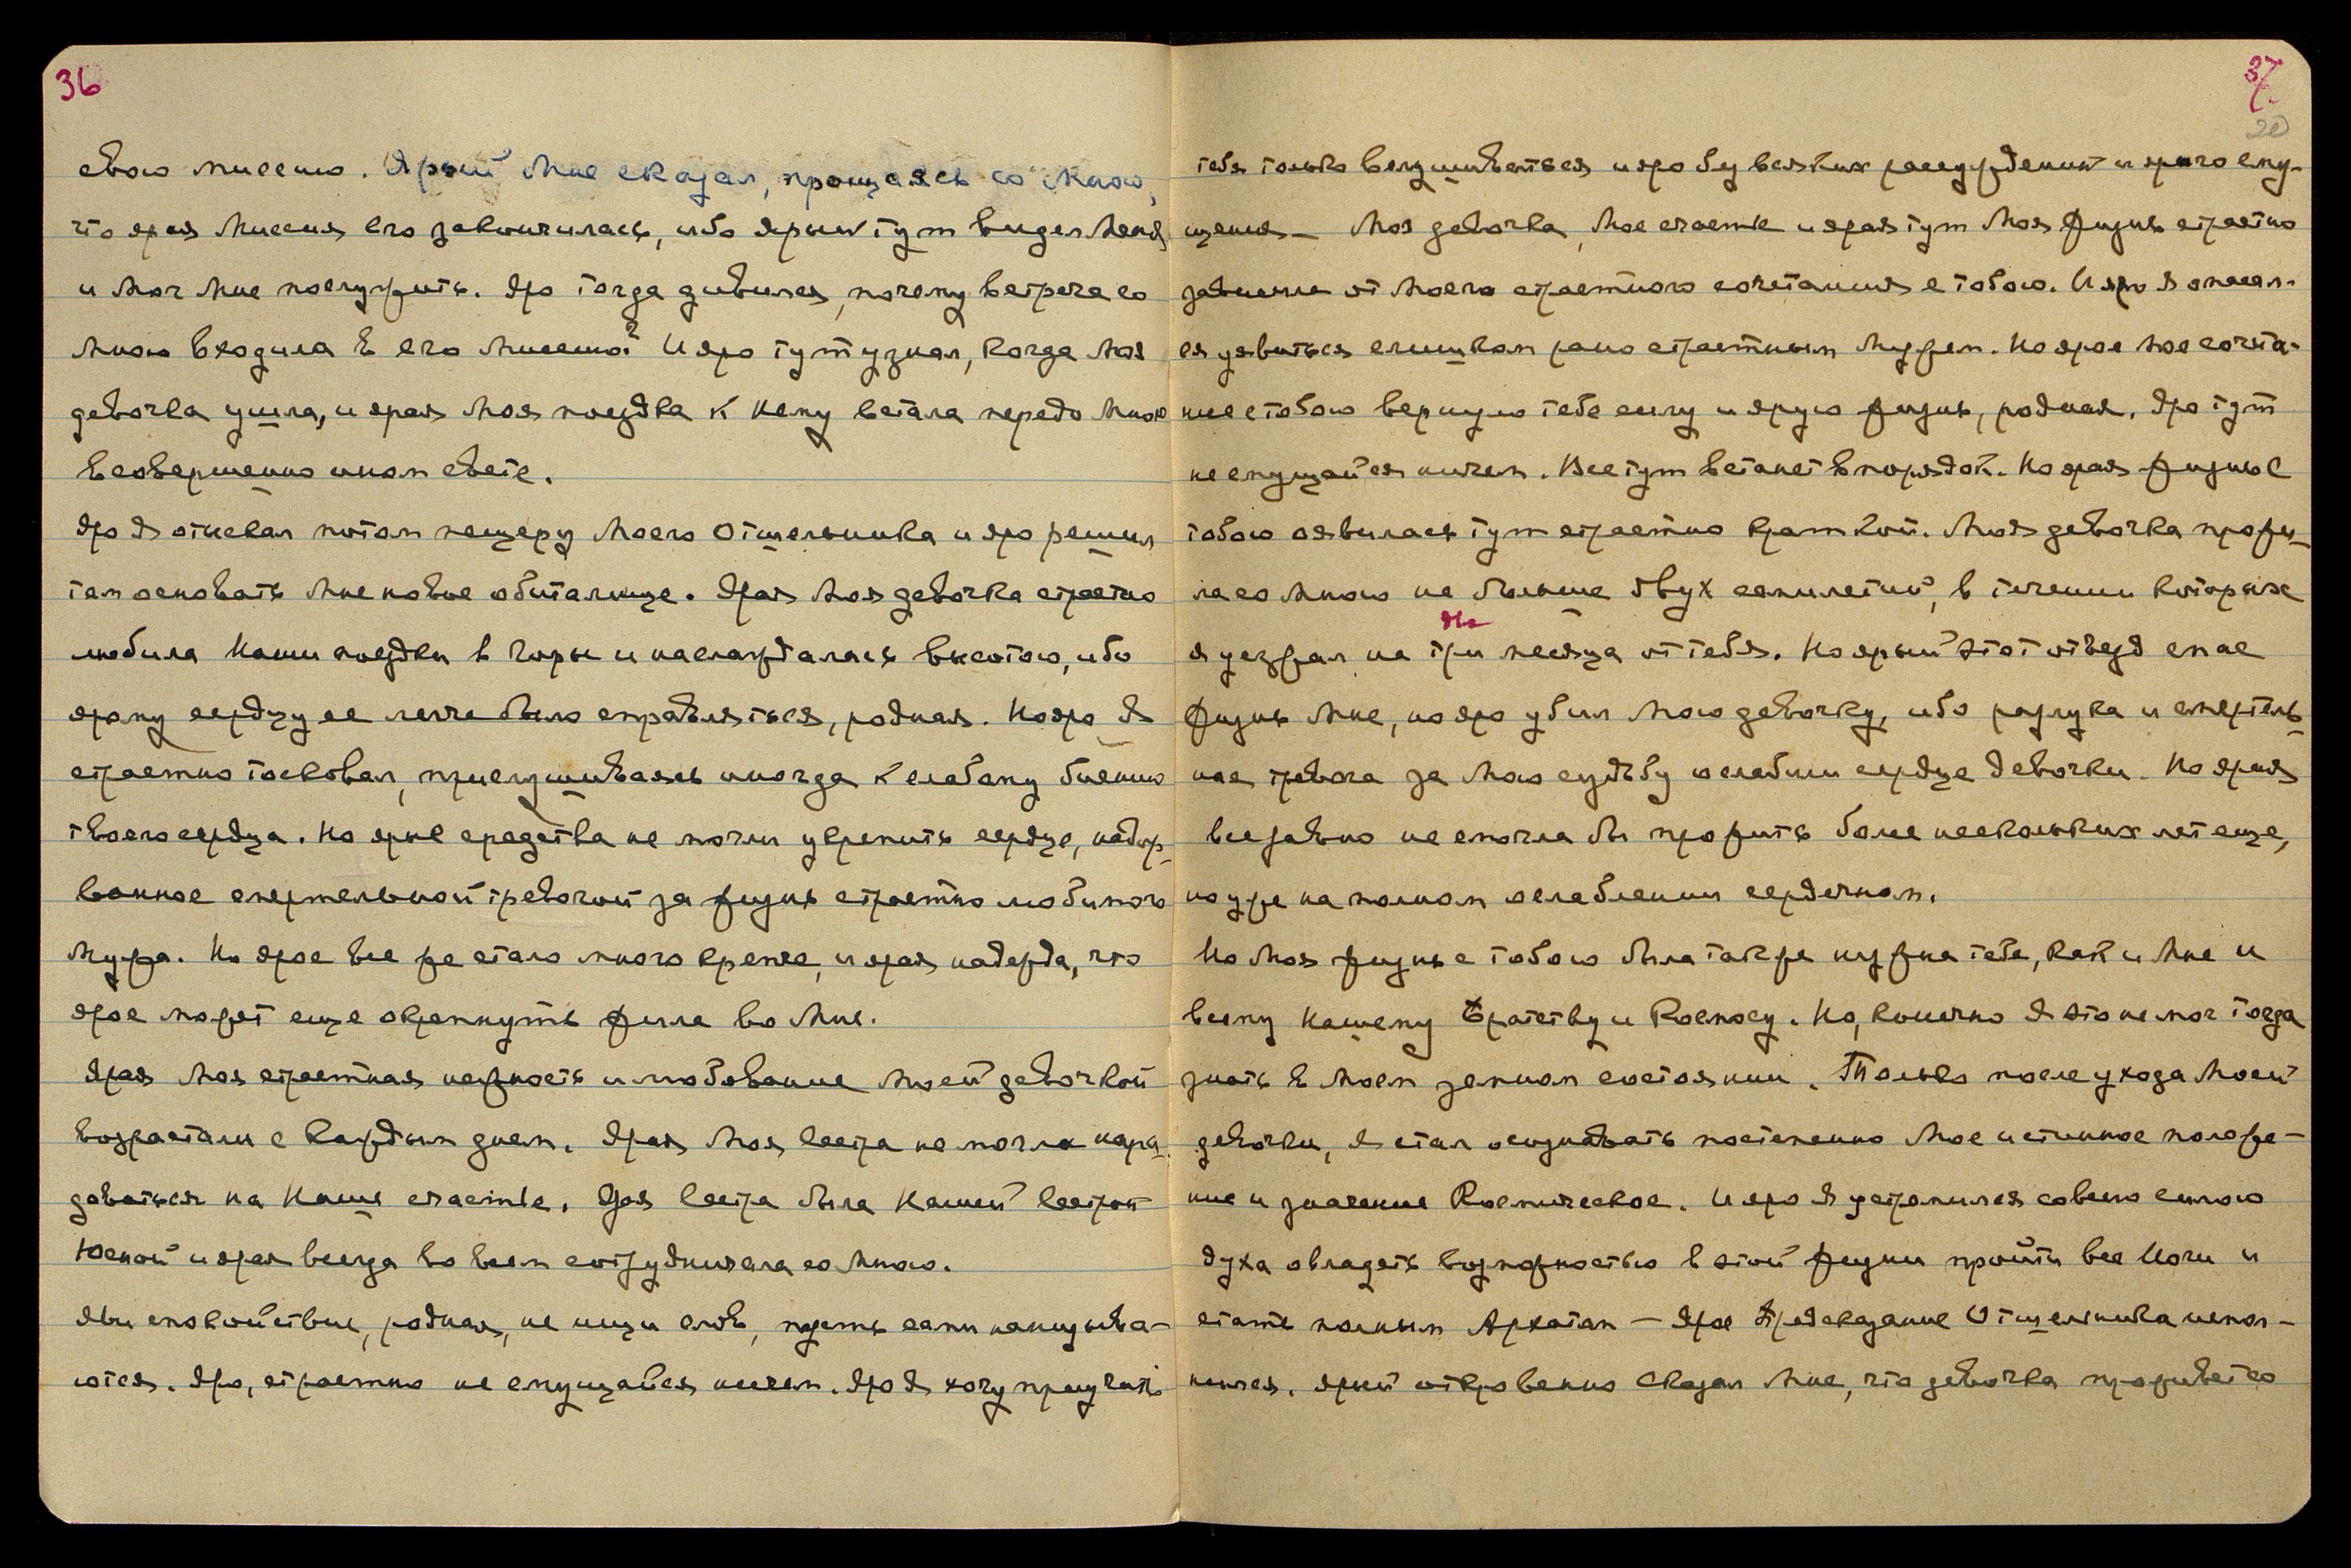 36
свою миссию. Ярый Мне сказал, прощаясь со Мною,
что ярая Миссия его закончилась, ибо ярый тут видел Меня
и Мог Мне послужить. Яро тогда дивился, почему встреча со
Мною входила в его Миссию? И яро тут узнал, когда Моя
девочка ушла, и ярая Моя поездка к нему встала передо Мною
в совершенно ином свете.
Яро Я отыскал потом пещеру Моего Отшельника и яро решил
там основать Мне новое обиталище. Ярая Моя девочка страстно
любила Наши поездки в Горы и наслаждалась высотою, ибо
ярому сердцу ее легче было справляться, родная. Но яро Я
страстно тосковал, прислушиваясь иногда к слабому биению
твоего сердца. Но ярые средства не могли укрепить сердце, надор-
ванное смертельной тревогой за жизнь страстно любимого
Мужа. Но ярое все же стало много крепче, и ярая надежда, что
ярое может еще окрепнуть жила во Мне.
Ярая Моя страстная нежность и любование Моей девочкой
возрастали с каждым днем. Ярая Моя сестра не могла нара-
доваться на Наше счастье. Яра сестра была Нашей сестрой
Юсной и ярая всегда во всем сотрудничала со Мною.
Яви спокойствие, родная, не ищи слов, пусть сами нанизыва-
ются. Яро, страстно не смущайся ничем. Яро Я хочу приучить
37
20
тебя только вслушиваться и яро без всяких рассуждений и ярого сму-
щения — Моя девочка, Мое счастье и ярая тут Моя жизнь страстно
зависели от Моего страстного сочетания с тобою. И яро Я опасал-
ся уявиться слишком рано страстным Мужем. Но ярое Мое сочета-
ние с тобою вернуло тебе силу и ярую жизнь, родная. Яро тут
не смущайся ничем. Все тут встанет в порядок. Но ярая жизнь с
тобою оявилась тут страстно краткой. Моя девочка прожи-
ла со Мною не больше двух семилетий, в течении которых
я уезжал на три месяца от тебя. Но ярый этот отъезд спас
жизнь Мне, но яро убил Мою девочку, ибо разлука и смертель-
ная тревога за Мою судьбу ослабили сердце девочки. Но ярая
все равно не смогла бы прожить более нескольких лет еще,
но уже на полном ослаблении сердечном.
Но Моя жизнь с тобою была также нужна тебе, как и Мне и
всему Нашему Братству и Космосу. Но, конечно Я это не мог тогда
знать в Моем земном состоянии. Только после ухода Моей
девочки, Я стал осознавать постепенно Мое истинное положе-
ние и значение Космическое. И яро Я устремился со всею силою
духа овладеть возможностью в этой жизни пройти все Йоги и
стать полным Архатом — Ярое Предсказание Отшельника испол-
нилось. Ярый откровенно Сказал Мне, что девочка проживет со